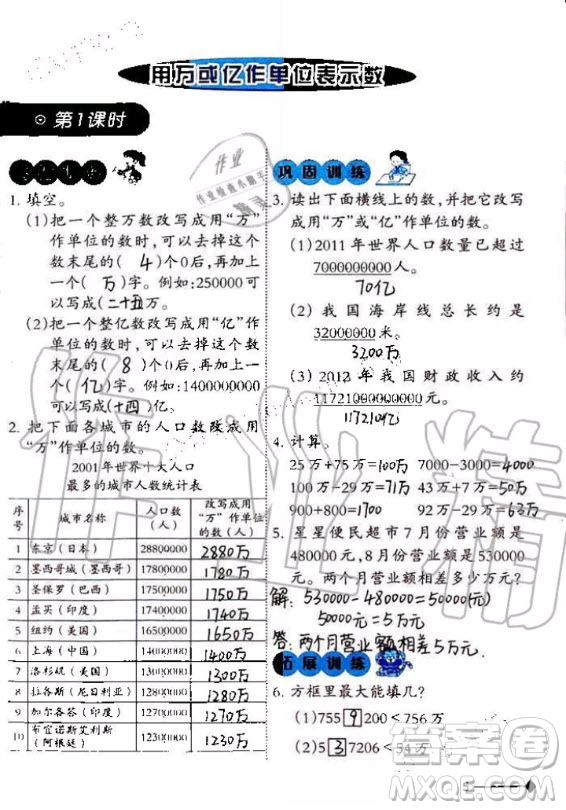 用万或亿作单位表示数
第1课时
1. 填空。
(1)把一个整万数改写成用“万”
作单位的数时,可以去掉这个
数末尾的( 4 )个0后,再加上
一个( 万 )字。例如:250000可
以写成(二十五万)。
(2)把一个整亿数改写成用“亿”作
单位的数时,可以去掉这个数
末尾的( 8 )个0后,再加上一
个(亿)字。例如:1400000000
可以写成(十四)亿。
2. 把下面各城市的人口数改成用
“万”作单位的数。
2001年世界十大人口
最多的城市人数统计表
序号 城市名称 人口数(人) 改写成用“万”作单位的数(人)
1 东京(日本) 28800000 2880万
2 墨西哥城(墨西哥) 17800000 1780万
3 圣保罗(巴西) 17500000 1750万
4 孟买(印度) 17400000 1740万
5 纽约(美国) 16500000 1650万
6 上海(中国) 14000000 1400万
7 洛杉矶(美国) 13000000 1300万
8 拉各斯(尼日利亚) 12700000 1270万
9 加尔各答(印度) 12700000 1270万
10 布宜诺斯艾利斯(阿根廷) 12300000 1230万
巩固训练
3. 读出下面横线上的数,并把它改写
成用“万”或“亿”作单位的数。
(1)2011年世界人口数量已超过
7000000000人。
70亿
(2)我国海岸线总长约是
32000000米。
3200万
(3)2012年我国财政收入约
11721000000000元。
117210亿
4. 计算。
25万+75万=100万 7000-3000=4000
100万-29万=71万 570万+30万=600万
900+800=1700 92万-29万=63万
5. 星星便民超市7月份营业额是
480000元,8月份营业额是530000
元。两个月营业额相差多少万元?
解: 530000-480000=50000元
50000元=5万元
答:两个月营业额相差5万元。
拓展训练
6. 方框里最大能填几?
(1)755 9 200<756万
(2)5 3 7206<54万
答案卷
MXQE.COM